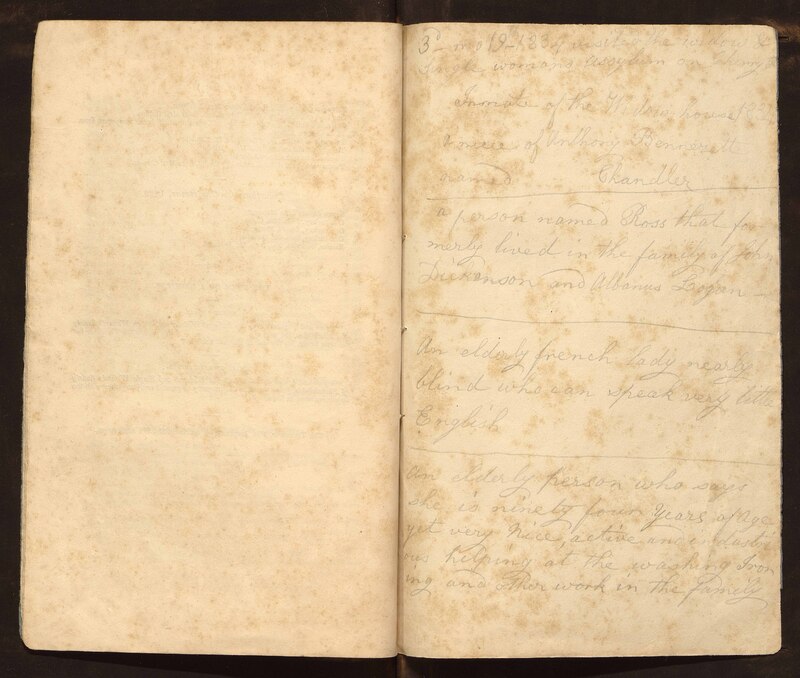 3d mo 19-183 visited the widow &
Single womans assylum on
Inmate of the Widows house 183
a niece of Anthony Bennezett
named Chandler
a person named Ross that for
merly lived in the family of John
Dickenson and Albanus Logan
An elderly french lady nearly
blind who can speak very little
English
An elderly person who says
she is ninety four years of age
yet very nice, active and industri
ous helping at the washing Iron
ing and other work in the family